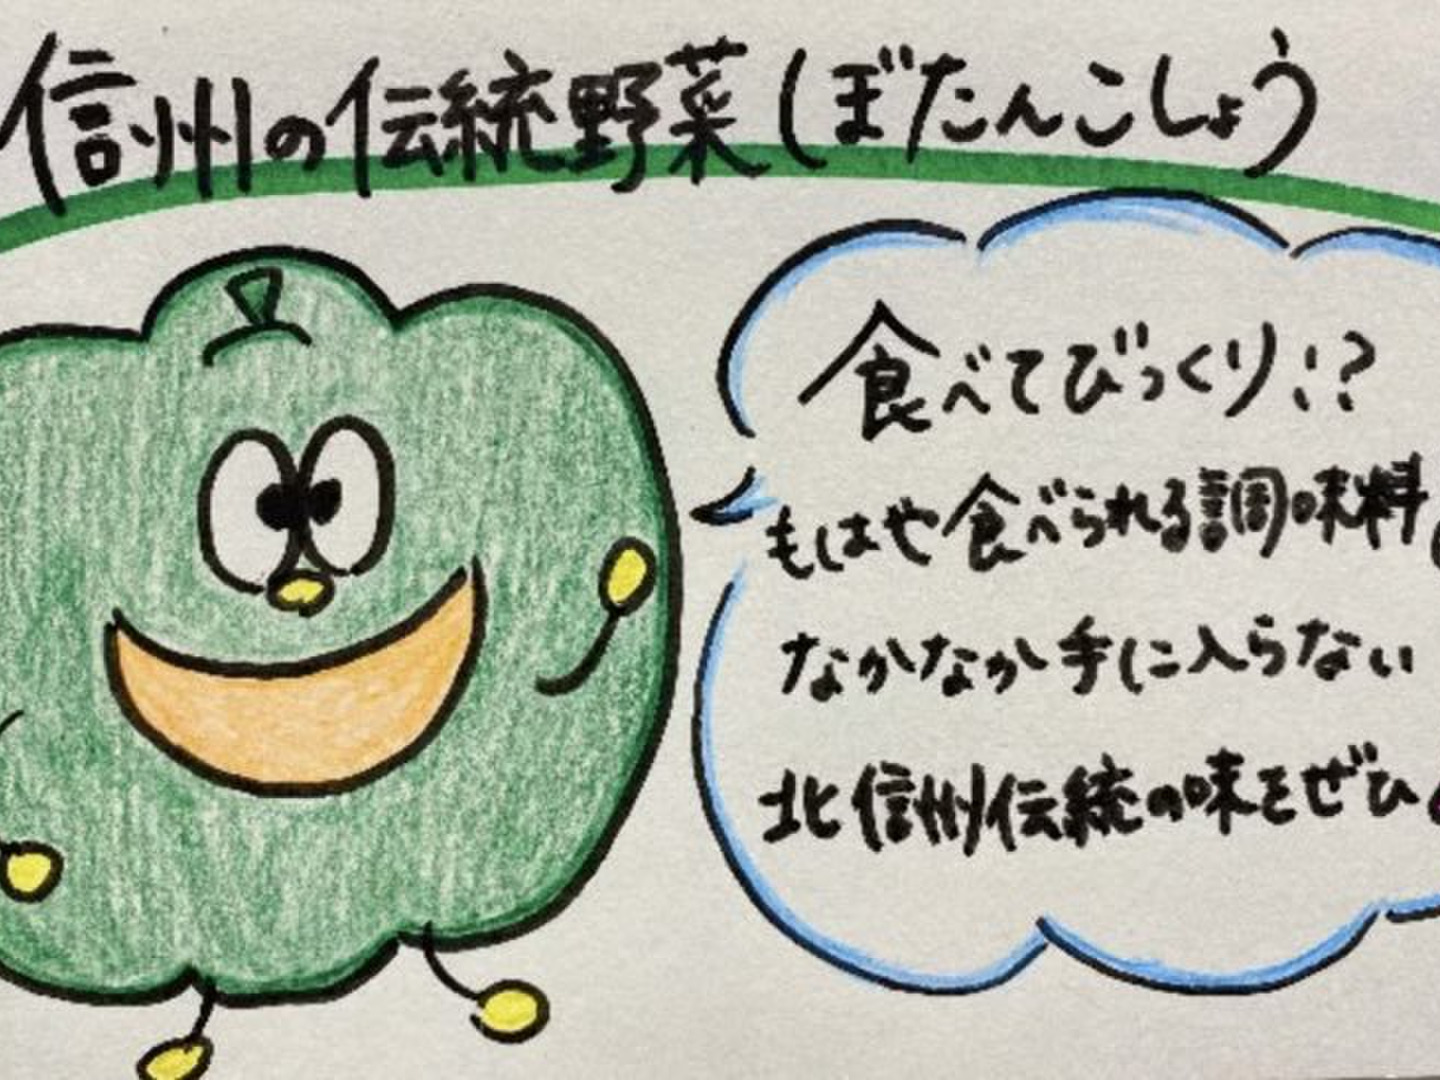 信州の伝統野菜 ぼたんこしょう
食べてびっくり!?
もはや食べられる調味料
なかなか手に入らない
北信州伝統の味をぜひ